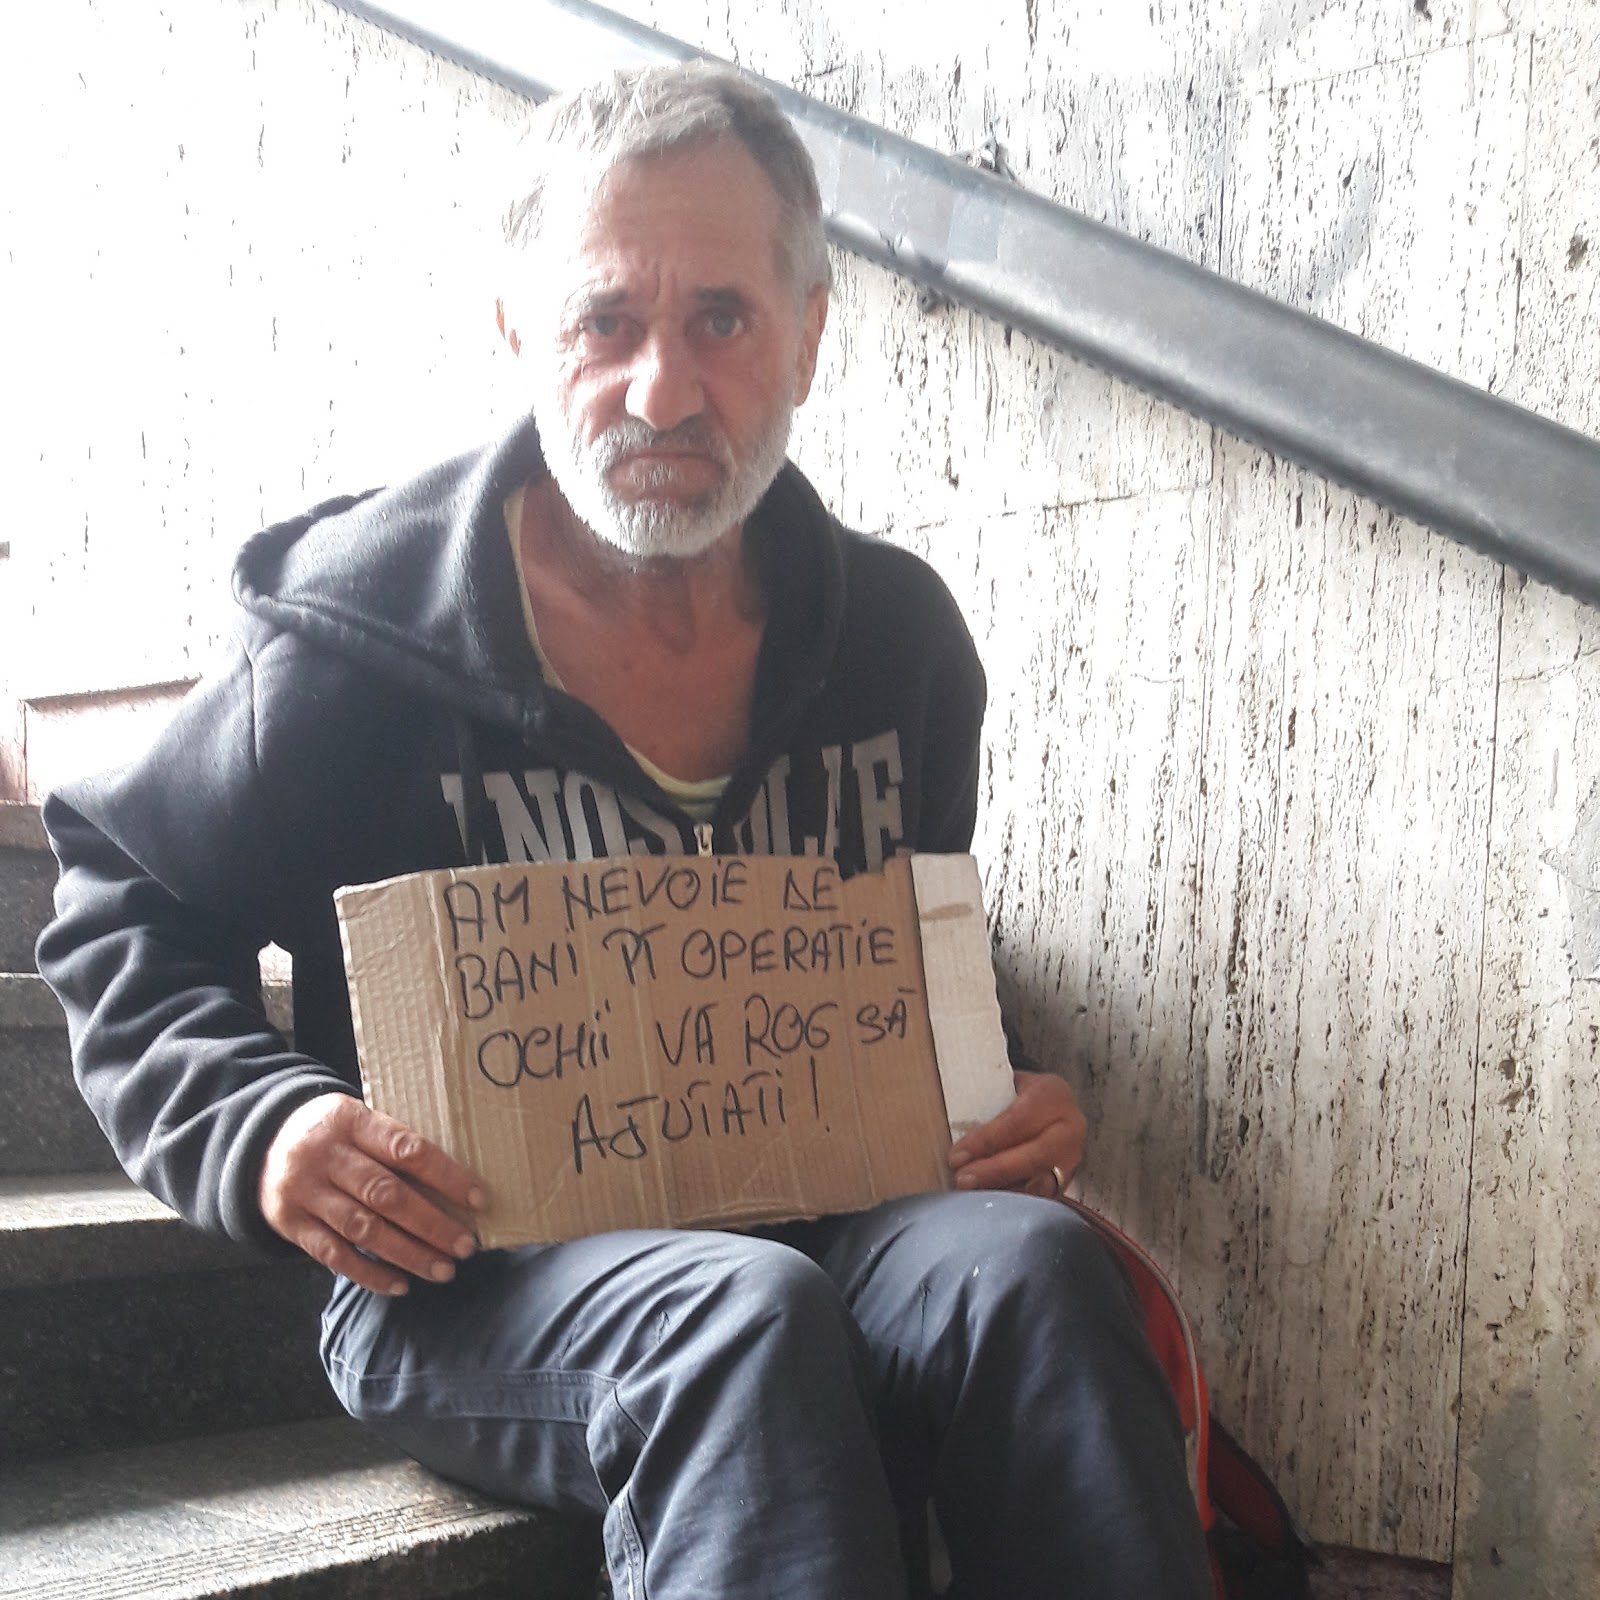 AM NEVOIE DE
BANI PT OPERATIE
OCHII VA ROG SĂ
AJUTATI!